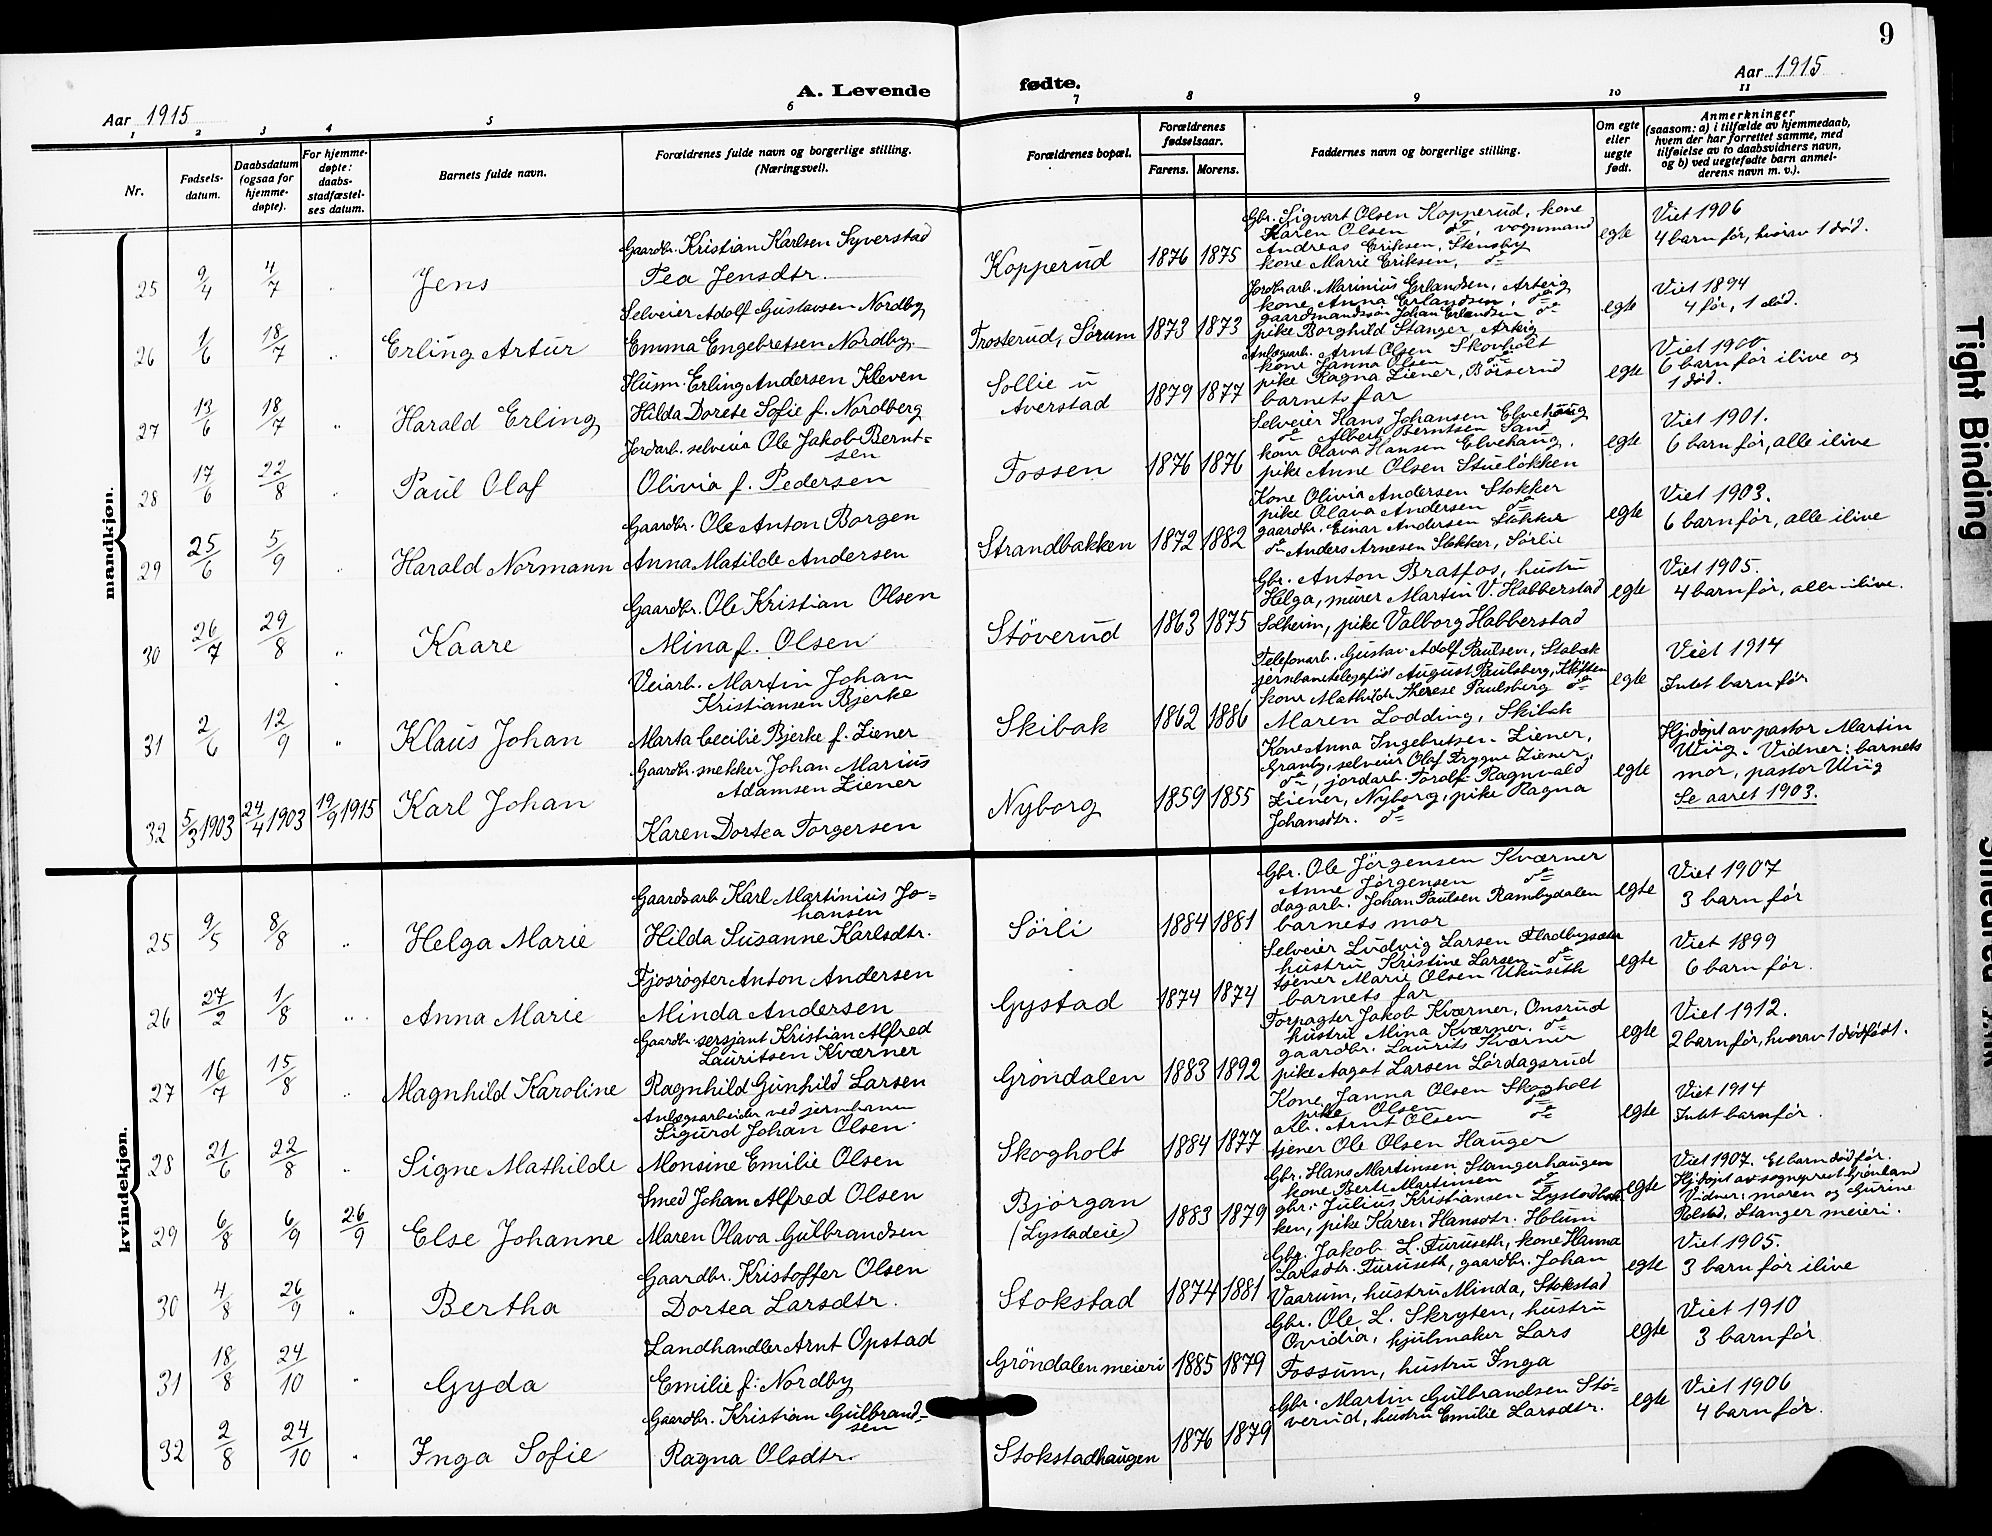 9
Aar 1915
A. Levende
fødte.
Aar 1915
1 2 3 4 5 6 7 8 9 10 11
Nr.
Fødsels-
datum.
Daabsdatum
(ogsaa for
hjemme-
døpte).
For hjemme-
døpte:
daabs-
stadfæstel-
ses datum.
Barnets fulde navn.
Forældrenes fulde navn og borgerlige stilling.
(Næringsvei).
Forældrenes bopæl.
Forældrenes
fødselsaar.
Farens. Morens.
Faddernes navn og borgerlige stilling.
Om egte
eller
uegte
født.
Anmerkninger
(saasom: a) i tilfælde av hjemmedaab,
hvem der har forrettet samme, med
tilføielse av to daabsvidners navn,
og b) ved uegtefødte barn anmel-
derens navn m. v.).
mandkjøn.
25 9/4 4/7 Jens
Gaardbr. Kristian Karlsen Syverstad
Tea Jensdtr.
Kopperud 1876 1875
Gbr. Sigvart Olsen Kopperud, kone
Karen Olsen do, vognmand
Andreas Eriksen, Stensby
kone Marie Eriksen, do
egte
Viet 1906
4 barn før, hvorav 1 død.
26 1/6 18/7 " Erling Artur
Selveier Adolf Gustavsen Nordby
Emma Engebretsen Nordby.
Frosterud, Sørum 1873 1873
Jordbrarb. Marinius Erlandsen, Arteig
kone Anna Erlandsen, do
gaardmandssøn Johan Erlandsen do
pike Borghild Stanger, Arteig
egte
Viet 1894
4 før, 1 død.
27 13/6 18/7 " Harald Erling
Husm. Erling Andersen Kleven
Hilda Dorete Sofie f. Nordberg
Sollie u
Averstad 1879 1877
Anlegsarb. Arnt Olsen Skovholt
kone Janna Olsen do
pike Ragna Liener, Böiserud
barnets far
egte
Viet 1900.
6 barn før ilive og
1 død.
28 17/6 22/8 " Paul Olaf
Jordarb. selveier Ole Jakob Bernt=
sen
Olivia f. Pedersen
Fossen 1876 1876
Selveier Hans Johansen Elvehaug
do Albert Berntsen Sand
kone Olava Hansen Elvehaug,
pike Anne Olsen Stueløkken
egte
Viet 1901.
6 barn før, alle ilive
29 25/6 5/9 " Harald Normann
Gaardbr. Ole Anton Borgen
Anna Matilde Andersen
Strandbakken 1872 1882
Kone Olivia Andersen Stokker
pike Olava Andersen do
gaardbr. Einar Andersen Stokker
do Anders Arnesen Stokker, Sørlie
egte
Viet 1903.
6 barn før, alle ilive
30 26/7 29/8 " Kaare
Gaardbr. Ole Kristian Olsen
Mina f. Olsen
Støverud 1863 1875
Gbr. Anton Bratfos, hustru
Helga, murer Martin V. Habberstad
Solheim, pike Valborg Habberstad
egte
Viet 1905.
4 barn før, alle ilive.
31 2/6 12/9 " Klaus Johan
Veiarb. Martin Johan
Kristiansen Bjerke
Marta Cecilie Bjerke f. Liener
Skibak 1862 1886
Telefonarb. Gustav Adolf Paulsen, Stabæk
jernbanetelegrafist August Paulsberg, Kløften
kone Mathilde Therese Paulsberg do
Maren Lodding, Skibak
egte
Viet 1914
Intet barn før
32 5/3 1903 24/4 1903 19/9 1915 Karl Johan
Gaardbr. snekker Johan Marius
Adamsen Liener
Karen Dortea Torgersen
Nyborg 1859 1855
Kone Anna Ingebretsen Liener,
Granby, selveier Olaf Trygve Liener,
do, jordarb. Torolf Ragnvald
Liener, Nyborg, pike Ragna
Johansdtr. do
egte
Hj.døpt av pastor Martin
Wiig. Vidner: barnets
mor, pastor Wiig
Se aaret 1903.
kvindekjøn.
25 9/5 8/8 " Helga Marie
Gaardsarb. Karl Martinius Jo=
hansen
Hilda Susanne Karlsdtr.
Sørli 1884 1881
Gbr. Ole Jörgensen Kværner
Anne Jørgensen do
dagarb. Johan Paulsen Rambydalen
barnets mor
egte
Viet 1907
3 barn før
26 27/2 1/8 " Anna Marie
Fjøsrøgter Anton Andersen
Minda Andersen
Gystad 1874 1874
Selveier Ludvig Larsen Fladbysæter
hustru Kristine Larsen do
tjener Marie Olsen Ukuseth
barnets far
egte
Viet 1899
6 barn før.
27 16/7 15/8 " Magnhild Karoline
Gaardbr. sersjant Kristian Alfred
Lauritsen Kværner
Ragnhild Gunhild Larsen
Gröndalen 1883 1892
Forpagter Jakob Kværner, Onsrud
hustru Mina Kværner. do
gaardbr. Laurits Kværner
pike Aagot Larsen Lørdagsrud
egte
Viet 1912.
2 barn før, hvorav 1 dødfødt.
28 21/6 22/8 " Signe Mathilde
Anlegsarbeider ved jernbanen
Sigurd Johan Olsen.
Monsine Emilie Olsen
Skogholt 1884 1877
Kone Janna Olsen Skogholt
pike Olsen do
arb. Arnt Olsen do
tjener Ole Olsen Hauger
egte
Viet 1914
Intet barn før.
29 6/8 6/9 26/9 Else Johanne
Smed Johan Alfred Olsen
Maren Olava Gulbrandsen
Bjørgan
(Lystadeie) 1883 1879
Gbr. Hans Martinsen Stangerhaugen
kone Berte Martinsen do
gbr. Julius Kristiansen Lystadbak
ken, pike Karen Hansdtr. Holum
egte
Viet 1907. Et barn død før.
Hj.døpt av sogneprest Grønland
Vidner: moren og Gurine
Rolstad, Stanger meieri.
30 4/8 26/9 " Bertha
Gaardbr. Kristoffer Olsen
Dortea Larsdtr.
Stokstad 1874 1881
Gbr. Jakob L. Furuseth, kone Hanna
Larsdtr. Furuseth, gaardbr. Johan
Vaarum, hustru Minda, Stokstad
egte
Viet 1905.
3 barn før ilive
31 18/8 24/10 " Gyda
Landhandler Arnt Opstad
Emilie f. Nordby
Gröndalen meieri 1885 1879
Gbr. Ole L. Skryten, hustru
Ovidia, hjulmaker Lars
Fossum, hustru Inga
egte
Viet 1910
3 barn før
32 2/8 24/10 " Inga Sofie
Gaardbr. Kristian Gulbrand=
sen
Ragna Olsdtr.
Stokstadhaugen 1876 1879
Gbr. Martin Gulbrandsen Stö=
verud, hustru Emilie Larsdtr.
egte
Viet 1906
4 barn før.
Tight Binding